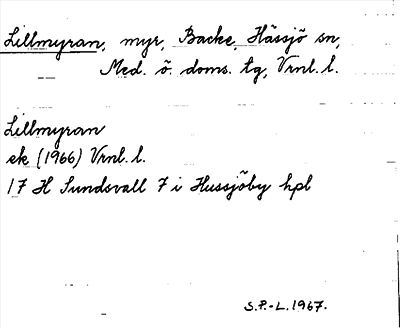 Lillmyran, myr, Backe, Hässjö sn,
Med. ö. doms. tg, Vrnl. l.
Lillmyran
ek (1966) Vrnl. l.
17 H Sundsvall 7 i Hussjöby hpl
S.P.-L. 1967.